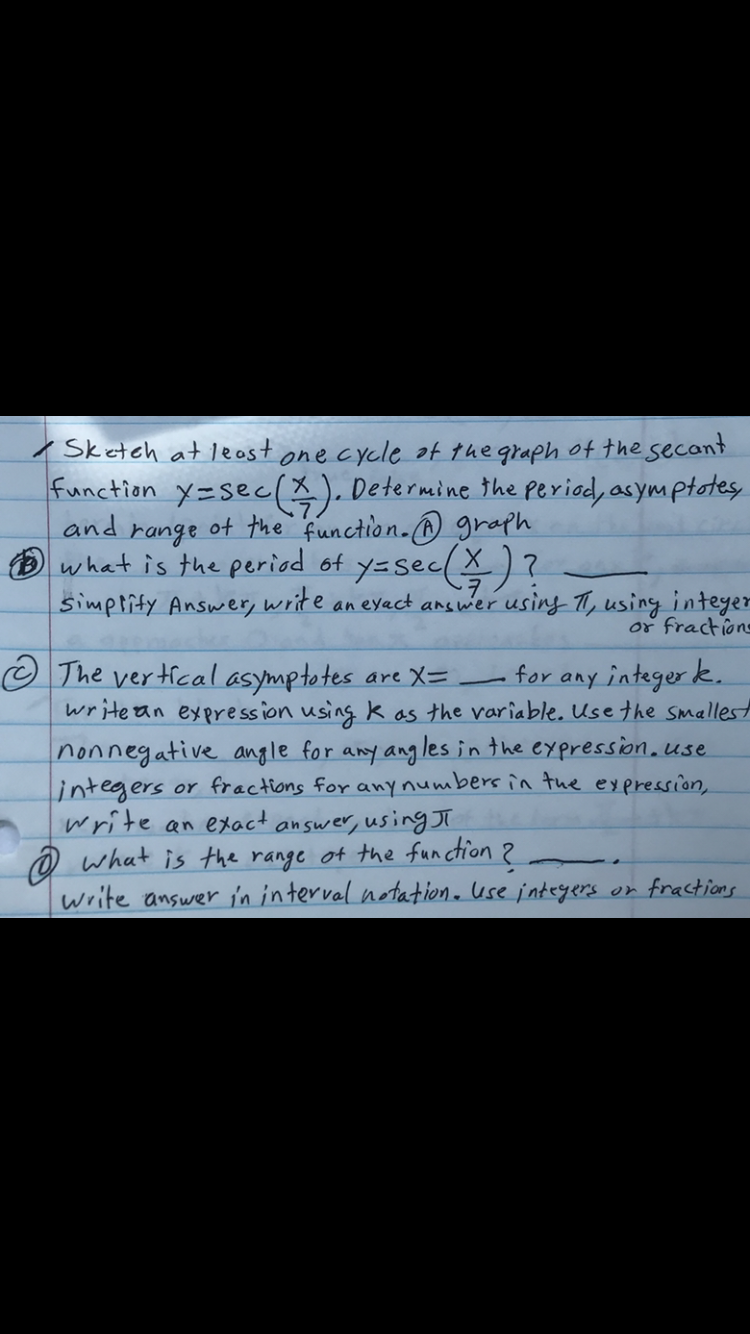 Sketch at least one cycle of the graph of the secant
function y=sec(x/7). Determine the period, asymptotes,
and range of the function. Ⓐ graph
Ⓑ what is the period of y=sec(x/7)? ____
simplify Answer, write an exact answer using π, using integer
or fractions
Ⓒ The vertical asymptotes are x= ___ for any integer k.
write an expression using k as the variable. Use the smallest
nonnegative angle for any angles in the expression. use
integers or fractions for any numbers in the expression,
write an exact answer, using π
Ⓓ what is the range of the function? ____.
write answer in interval notation. Use integers or fractions